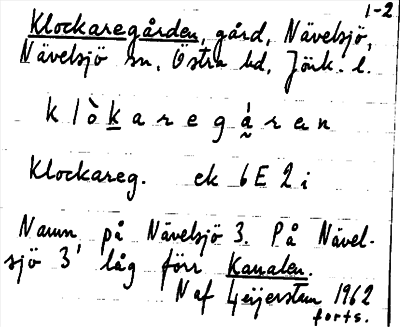 1-2
Klockaregården, gård, Nävelsjö,
Nävelsjö sn, Östra hd, Jönk. l.
k l ò k a r e g á r e n
Klockareg. ek 6E 2i
Namn på Nävelsjö 3. På Nävel-
sjö 3 låg förr Kanalen.
N af Geijerstam 1962
forts.